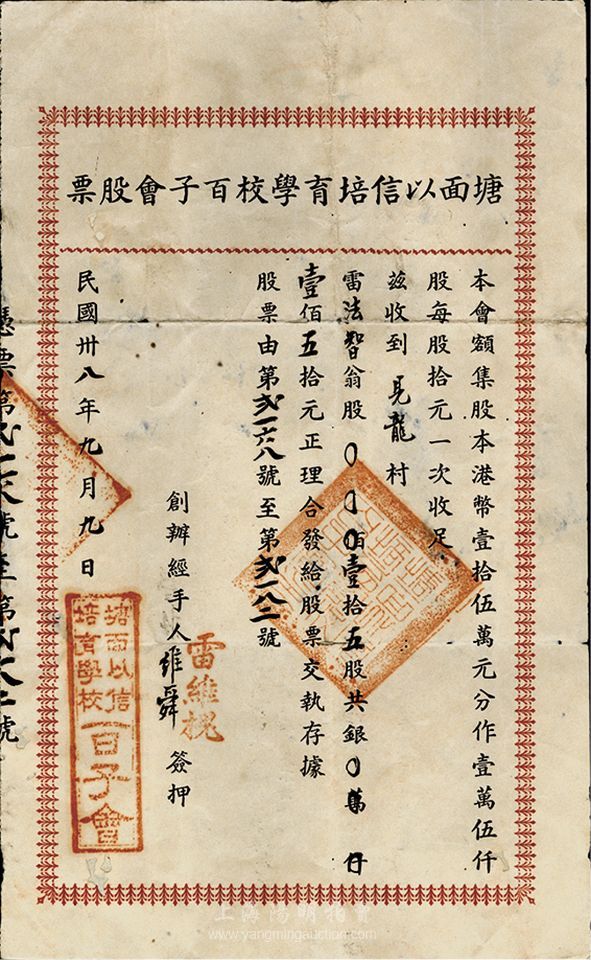 塘面以信培育學校百子會股票
本會額集股本港幣壹拾伍萬元分作壹萬伍仟
股每股拾元一次收足
茲收到見龍村
雷法智翁股〇〇〇佰壹拾五股共銀〇萬〇仟
壹佰五拾元正理合發給股票交執存據
股票由第弍一六八號至第弍一八二號
創辦經手人雷維槐維舜簽押
民國卅八年九月九日
塘面以信
培育學校
百子會
憑票第弍一六八號至第弍一八二號
上海陽明拍賣
www.yangmingauction.com